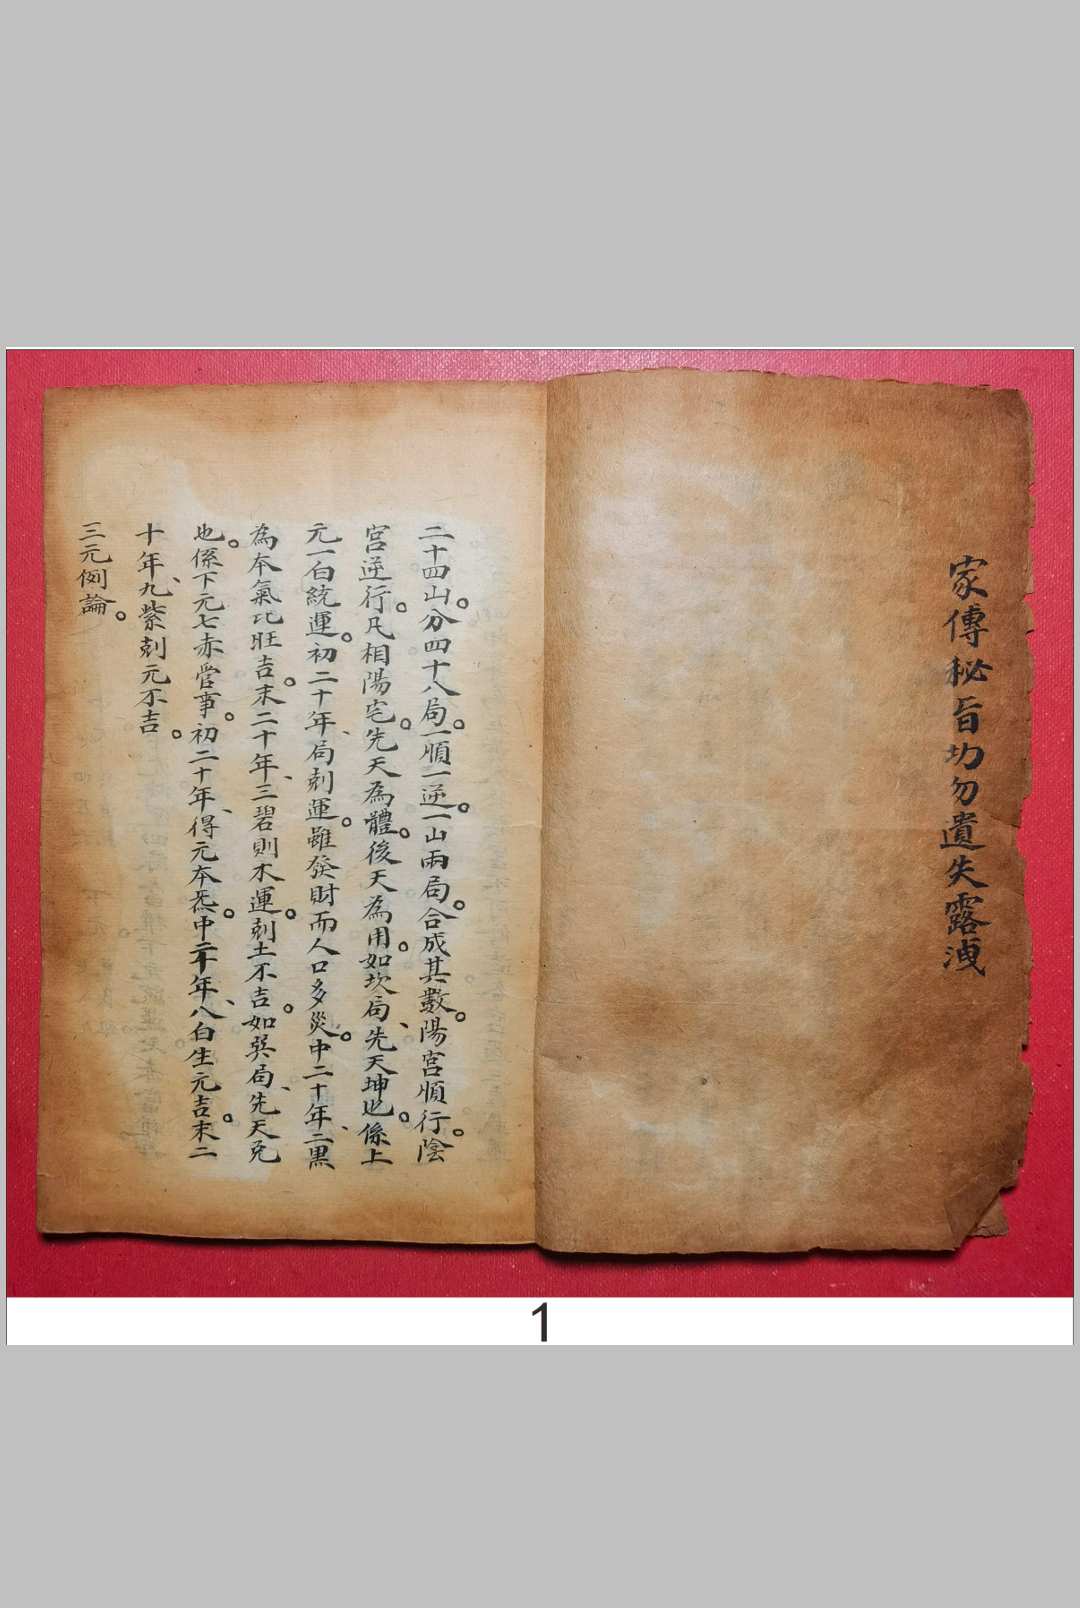 家傳秘旨切勿遺失露洩
二十四山。分四十八局。一順一逆。一山兩局。合成其數。陽宮順行。陰
宮逆行。凡相陽宅。先天為體。後天為用。如坎局、先天坤也。係上
元一白統運。初二十年、局剋運。雖發財而人口多災。中二十年、二黑
為本氣比旺吉。末二十年、三碧則木運。剋土不吉。如巽局、先天兌
也。係下元七赤管事。初二十年、得元本炁。中二十年、八白生元吉。末二
十年、九紫剋元不吉。
三元例論。
1